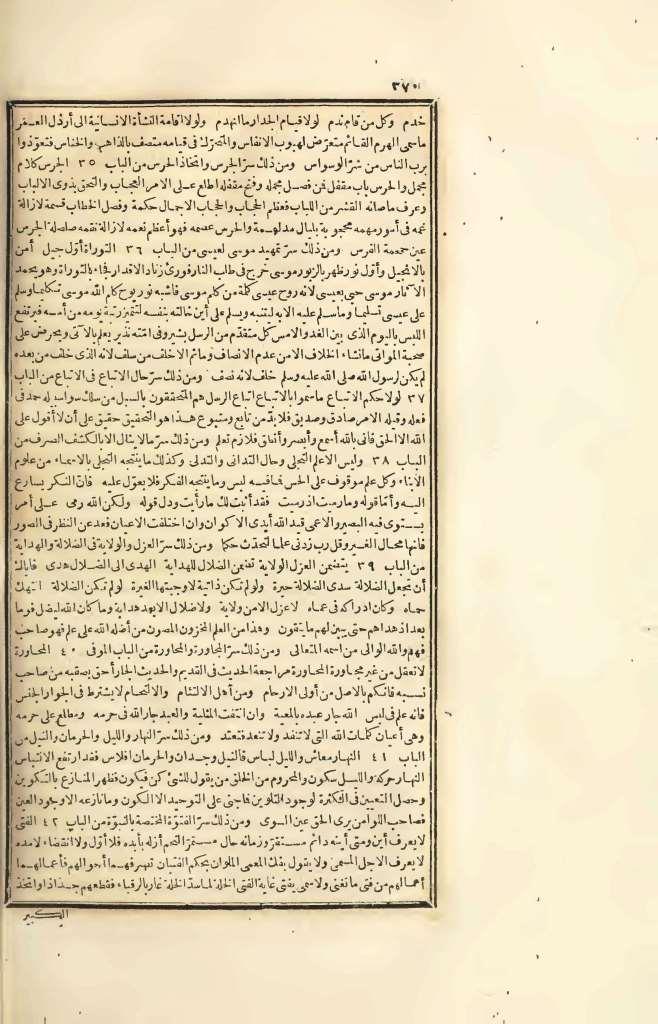 ٣٧٥
خدم وكل من قام ندم لولا قيام الجدار ما انهدم ولولا اقامة النشأة الانسانية الى أرذل العمر
ما سمى الهرم القائم متعرض لهبوب الانفاس والتصرّف فى قيامه متصف بالذاهب والخناس فتعوّذوا
برب الناس من شرّ الوسواس ومن ذلك سرّ الجرس واتخاذ الحرس من الباب ٣٥ الجرس كلام
مجمل والحرس باب مقفل فمن فصل مجمله وفتح مقفله اطلع على الامر العجاب والتحق بذوى الالباب
وعرف ما صانه القشر من اللباب فعظم الحجاب والحجاب الاجمال حكمة وفصل الخطاب قسمة لازالة
غمه فى أمور مهمه محجوبة بليال مدلهمة والحرس عصمه فهو أعظم نعمه لازالة نقمه صلصلة الجرس
عين حمحمة الفرس ومن ذلك سرّ تمهيد موسى لعيسى من الباب ٣٦ التوراة أوّل جيل أمن
بالانجيل وأوّل نور ظهر بالزبور موسى خرج فى طلب النار فورى زناد الاقدار فجاء بالتوراة وهو يحمد
الآثار موسى حى بعيسى لانه روح عيسى كلمة من كلم موسى فاشبه نور يوح كلم الله موسى تكليما وسلم
على عيسى تسليما وما سلم عليه الا به ليتنبه ويسلم على أبن خالته بنفسه لتتميز رتبة يومه من أمسه فيرتفع
اللبس باليوم الذى بين الغد والامس كل متقدم من الرسل بشير وفى امته نذير يعلم بالآتى ويحرض على
صحبة المواتى ما نشاء الخلاف الا من عدم الانصاف وما ثم الا خلف من سلف لانه الذى خلف من بعده
لم يكن لرسول الله صلى الله عليه وسلم خلف لانه نصف ومن ذلك سرّ حال الاتباع فى الاتباع من الباب
٣٧ لولا حكم الاتباع ما سموا بالاتباع اتباع الرسل هم المتحققون بالسبل من سلك سواء سبيله حمد فى
فعله وقيله الامر صادق وصديق فلا بدّ من تابع ومتبوع هذا هو التحقيق حقيق على أن لا أقول على
الله الا الحق فانى بالله أسمع وأبصر وأنطق فلازم تعلم ومن ذلك سرّ ما لا ينال الا بالكشف الصرف من
الباب ٣٨ وليس الا علم التجلى وحال التدانى والتدلى وكذلك ما ينتجه التحلى بالاسماء من علوم
الانباء وكل علم موقوف على الحس فما فيه لبس وما ينتجه الفكر فلا يعوّل عليه فانّ النكر يسارع
اليه وأتما قوله وما رميت اذ رميت فقد أثبت لك ما رأيت ودل قوله ولكن الله رمى على أمر
يستوى فيه البصير والاعمى فيد الله أيدى الاكوان وان اختلفت الاعيان فعد عن النظر فى الصور
فانها محال الغير وقل رب زدنى علما لتحدث حكما ومن ذلك سرّ العزل والولاية فى الضلالة والهداية
من الباب ٣٩ يتضمن العزل الولاية تضمن الضلال للهداية الهدى الى الضلال هدى فاياك
أن تجعل الضلالة سدى الضلالة حيرة ولو لم تكن ذاتية لاوجبتها الغيرة لو لم تكن الضلالة انتهك
حماه وكان ادراكه فى عماه لا عزل الا من ولاية ولا ضلال الا بعد هداية وما كان الله ليضل قوما
بعد اذ هداهم حتى يبين لهم ما يتقون وهذا من العلم المخزون المصون من أضله الله على علم فهو صاحب
فهم والله الوالى من اسمه المتعالى ومن ذلك سرّ المجاورة والمحاورة من الباب الموفى ٤٠ المحاورة
لا تعقل من غير مجاورة المحاورة مراجعة الحديث فى القديم والحديث الجار أحق بصقبه من صاحب
نسبه فانكم بالاصل من أولى الارحام ومن أهل الالتئام والالتحام لا يشترط فى الجوار الجنس
فانه علم فى لبس الله جار عبده بالمعية وان انتفت المثلية والعبد جار الله فى حرمه ومطلع على حرمه
وهى أعيان كلمات الله التى لا تنفد ولا تبعد فتعتد ومن ذلك سرّ النهار والليل والحرمان والنيل من
الباب ٤١ النهار معاش والليل لباس فالنيل وجدان والحرمان افلاس فقد ارتفع الالتباس
النهار حركة والليل سكون والمحروم من الخلق من يقول للشئ كن فيكون فظهر المنازع بالتكوين
وحصل التعيين فى الكثرة لوجود التلوين فاجنى على التوحيد الا الكون وما نازعه الا وجود العين
فصاحب اللوامن يرى الحق عين السوى ومن ذلك سرّ الفتوّة المختصة بالنبوّة من الباب ٤٢ الفتى
لا يعرف أين ومتى أينه دائم مستقرّ وزمانه حال مستمرّ التحم أزله بأبده فلا أوّل ولا انقضاء لامده
لا يعرف الاجل المسمى ولا يقول بفك المعمى الملوان يحكم الفتيان تصرفهما أحوالهم فأعمالهما
أعمالهم من فتى ما تغنى ولا سمى يفتى غاية الفتى الخلة لما سدّ الخلة غار بالرقباء فقطعهم جذاذا واتخذ
الكبير